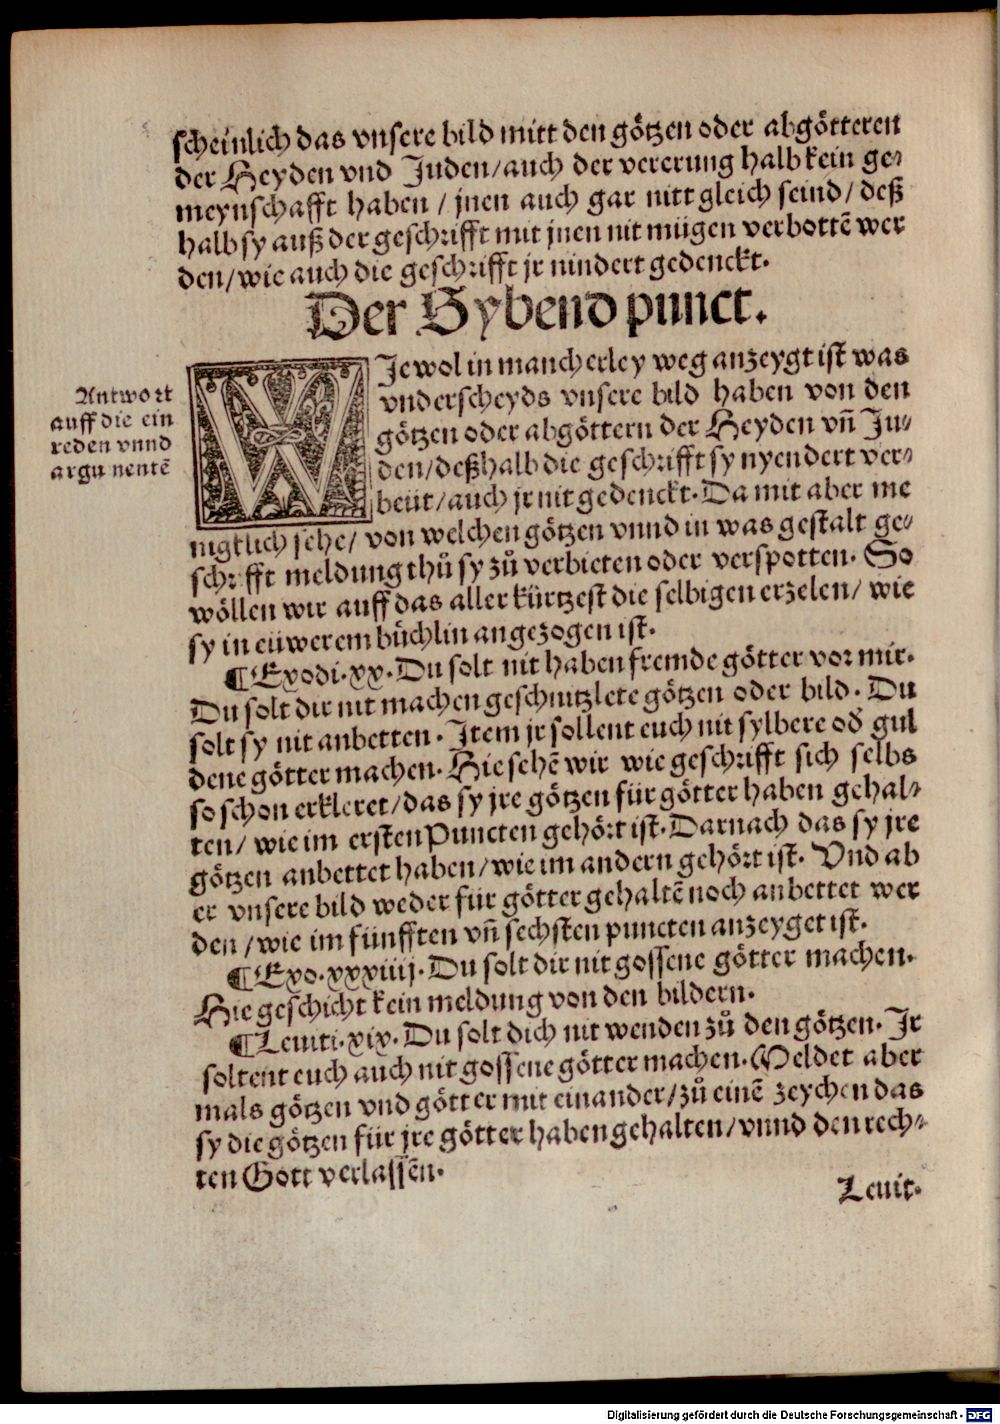 scheinlich das vnsere bild mitt den götzen oder abgötteren
der Heyden vnd Juden/auch der vererung halb kein ge-
meynschafft haben / jnen auch gar nitt gleich seind/ deß
halb sy auß der geschrifft mit jnen nit mügen verbottē wer
den/wie auch die geschrifft jr nindert gedenckt.
Der Sybend punct.
Antwort
auff die ein
reden vnnd
argumentē
WJewol in mancherley weg anzeygt ist was
vnderscheyds vnsere bild haben von den
götzen oder abgöttern der Heyden vñ Ju-
den/deßhalb die geschrifft sy nyendert ver-
beüt/auch jr nit gedenckt. Da mit aber me
nigtlich sehe/ von welchen götzen vnnd in was gestalt ge-
schrifft meldung thů sy zů verbieten oder verspotten. So
wöllen wir auff das aller kürtzest die selbigen erzelen/ wie
sy in eüwerem büchlin angezogen ist.
¶Exodi.xx. Du solt nit haben fremde götter vor mir.
Du solt dir nit machen geschnitzlete götzen oder bild. Du
solt sy nit anbetten. Jtem jr sollent euch nit sylbere od gul
dene götter machen. Hie sehē wir wie geschrifft sich selbs
so schon erkleret/das sy jre götzen für götter haben gehal-
ten/ wie im ersten Puncten gehört ist. Darnach das sy jre
götzen anbettet haben/wie im andern gehört ist. Vnd ab
er vnsere bild weder für götter gehaltē noch anbettet wer
den/wie im fünfften vñ sechsten puncten anzeyget ist.
¶Exo.xxxiiij. Du solt dir nit gossene götter machen.
Hie geschicht kein meldung von den bildern.
¶Leuiti.xix. Du solt dich nit wenden zů den götzen. Jr
soltent euch auch nit gossene götter machen. Meldet aber
mals götzen vnd götter mit einander/zů einē zeychen das
sy die götzen für jre götter haben gehalten/vnnd den rech-
ten Gott verlassēn.
Leuit.
Digitalisierung gefördert durch die Deutsche Forschungsgemeinschaft - DFG